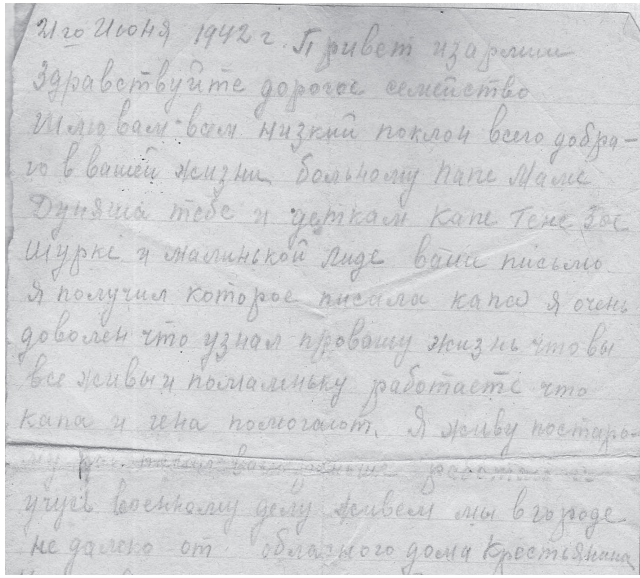 21го Июня 1942 г. Привет из армии
Здравствуйте дорогое семейство
Шлю вам всем низкий поклон всего добра-
го в вашей жизни больному папе Маме
Дуняша тебе и деткам Капе Гене Зое
Шурке и малинькой Лиде ваше письмо
я получил которое писала капа я очень
доволен что узнал провашу жизнь что вы
все живы и помаленьку работаете что
капа и гена помогают. Я живу постаро-
му писал вам раньше работаю и
учусь военному делу живем мы в городе
не далеко от областного дома Крестьянина